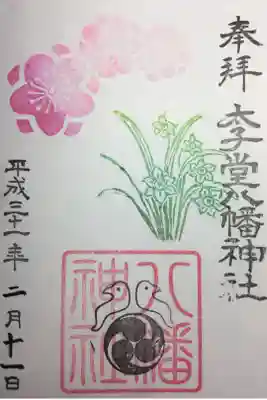 奉拝
太子堂八幡神社
八幡
神社
平成三十一年 二月十一日